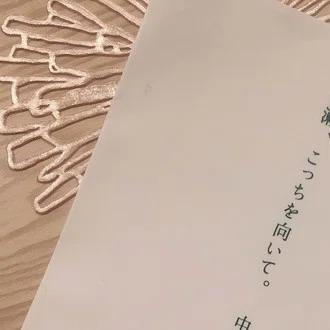 瀬、こっちを向いて。
中